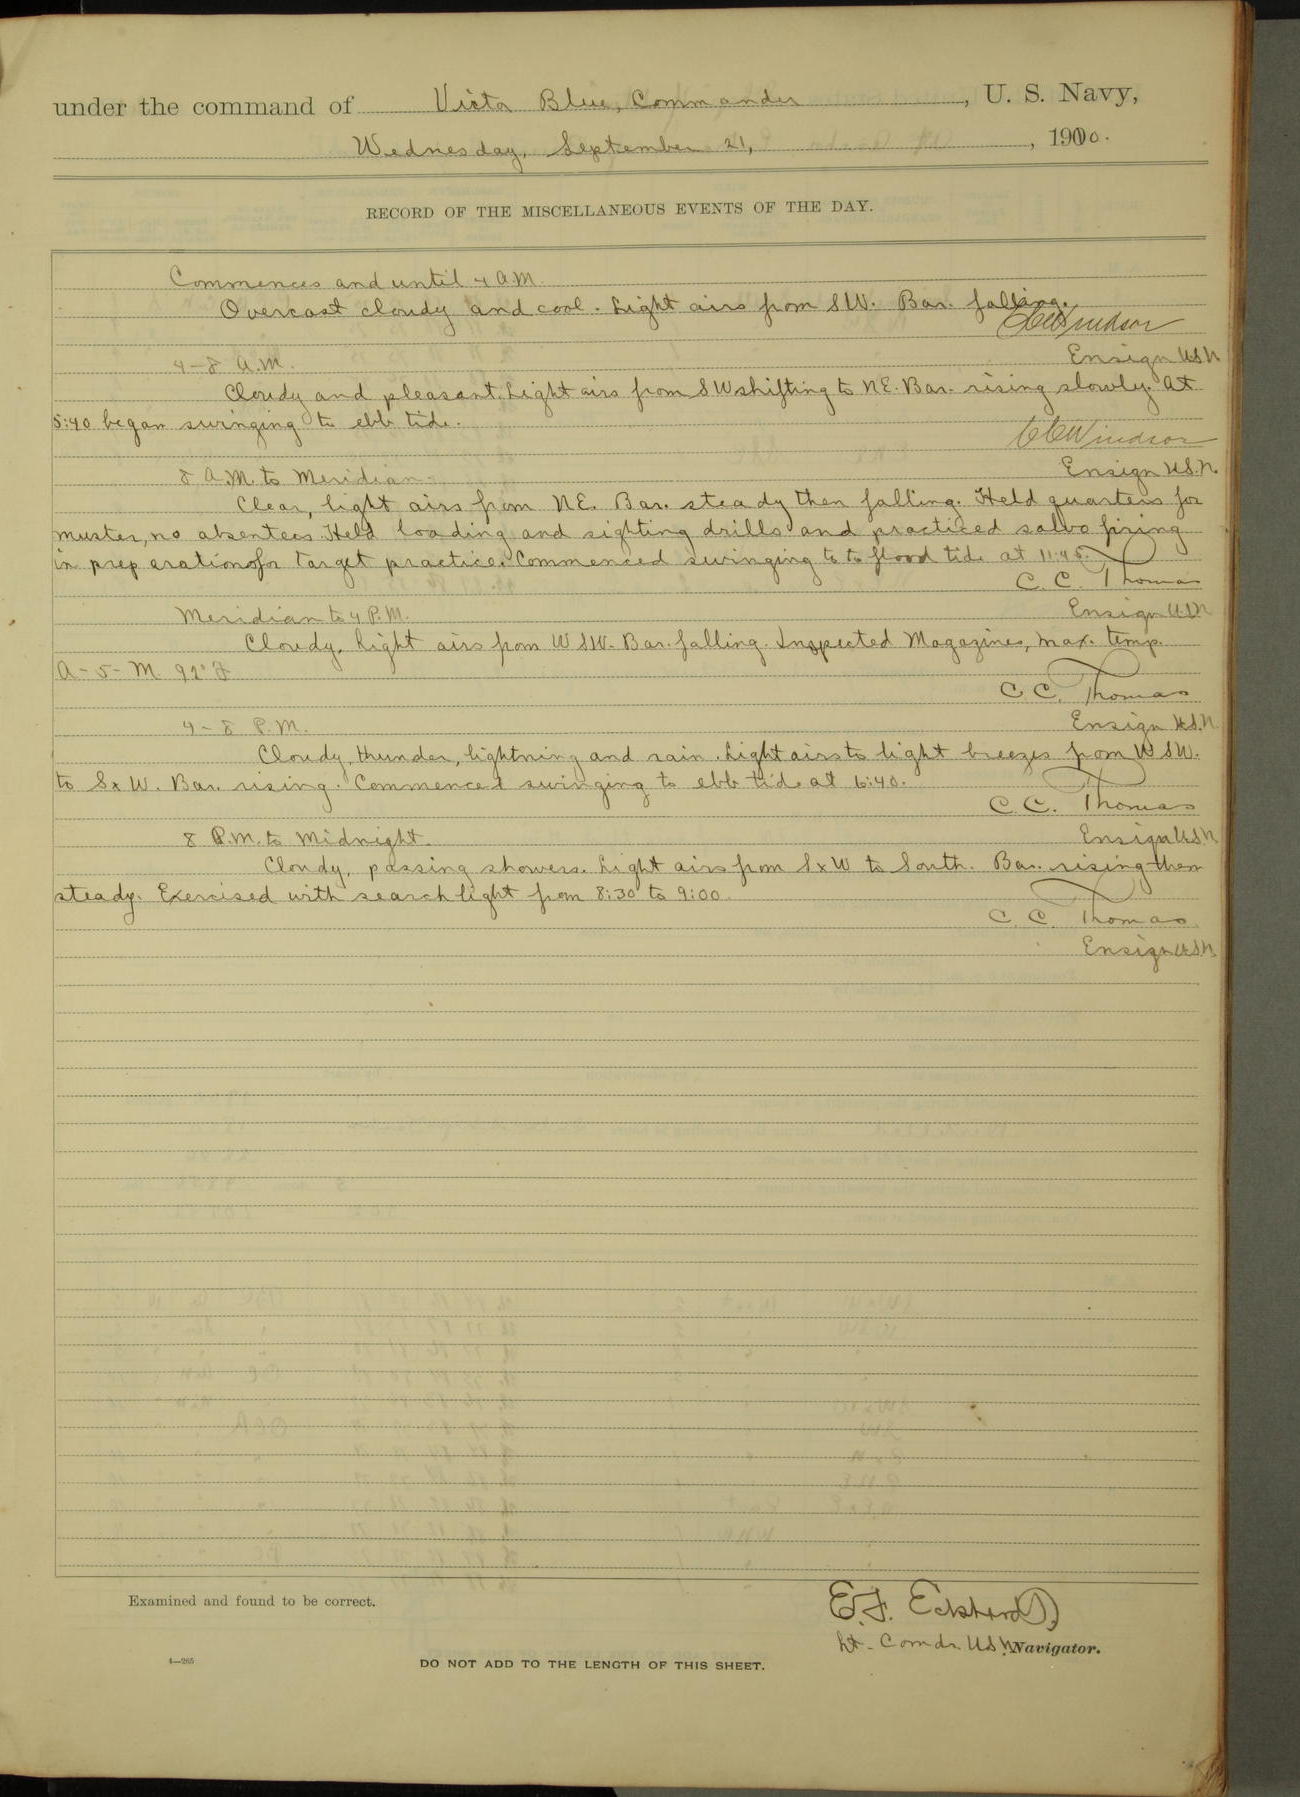 under the command of Victor Blue, Commander, U. S. Navy,
Wednesday, September 21, 1910.
RECORD OF THE MISCELLANEOUS EVENTS OF THE DAY.
Commences and until 4 A.M.
Overcast cloudy and cool. Light airs from SW. Bar. falling.
CCWindsor
4-8 A.M.
Ensign U.S.N
Cloudy and pleasant. Light airs from SW shifting to NE. Bar. rising slowly. At
5:40 began swinging to ebb tide.
CCWindsor
8 A.M. to Meridian
Ensign U.S.N.
Clear, light airs from NE. Bar. steady then falling. Held quarters for
muster, no absentees. Held loading and sighting drills and practiced salvo firing
in preparation for target practice. Commenced swinging to to flood tide at 11:45.
C. C. Thomas
Meridian to 4 P.M.
Ensign U.S.N
Cloudy. Light airs from WSW. Bar. falling. Inspected Magazines, max. temp.
A-5-M 92° F
C C. Thomas
4-8 P.M.
Ensign U.S.N.
Cloudy, thunder, lightning and rain. Light airs to light breezes from WSW.
to SxW. Bar. rising. Commenced swinging to ebb tide at 6:40.
C. C. Thomas
8 P.M. to Midnight.
Ensign U.S.N
Cloudy, passing showers. Light airs from SxW to South. Bar. rising then
steady. Exercised with search light from 8:30 to 9:00.
C. C. Thomas
Ensign U.S.N.
Examined and found to be correct.
E. F. Eckhardt,
Lt. Comdr. U.S.N. Navigator.
4—265
DO NOT ADD TO THE LENGTH OF THIS SHEET.